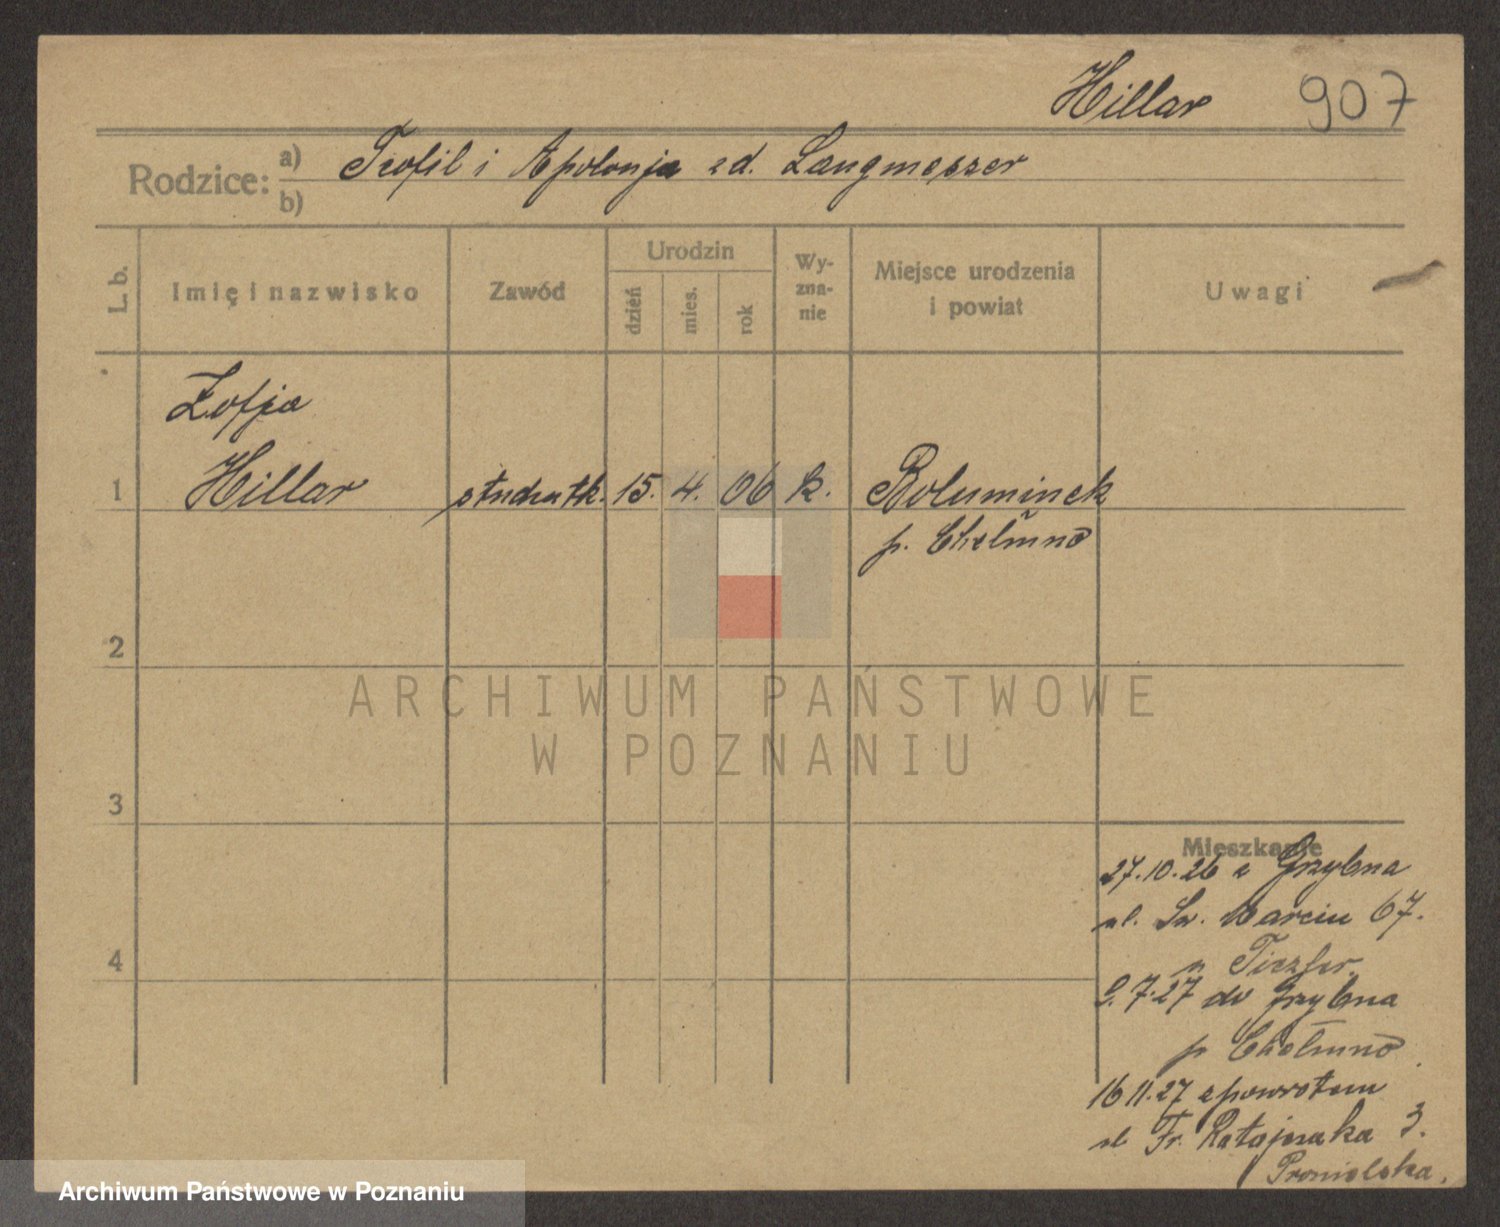 Hillar 907
Rodzice: a) Teofil i Apolonja zd. Langmesser
b)
L. b. Imię i nazwisko Zawód Urodzin dzień mies. rok Wy-zna-nie Miejsce urodzenia i powiat Uwagi
Zofja
1 Hillar studentk. 15. 4. 06 k. Boluminek
p. Chełmno
2
ARCHIWUM PAŃSTWOWE
W POZNANIU
3
Mieszkanie
27.10.26 z Grzybna
ul. Św. Marcin 67.
4
7.27 do Grzybna
p Chełmno
16 11.27 z powrotem
ul Fr. Ratajczaka 3.
Archiwum Państwowe w Poznaniu